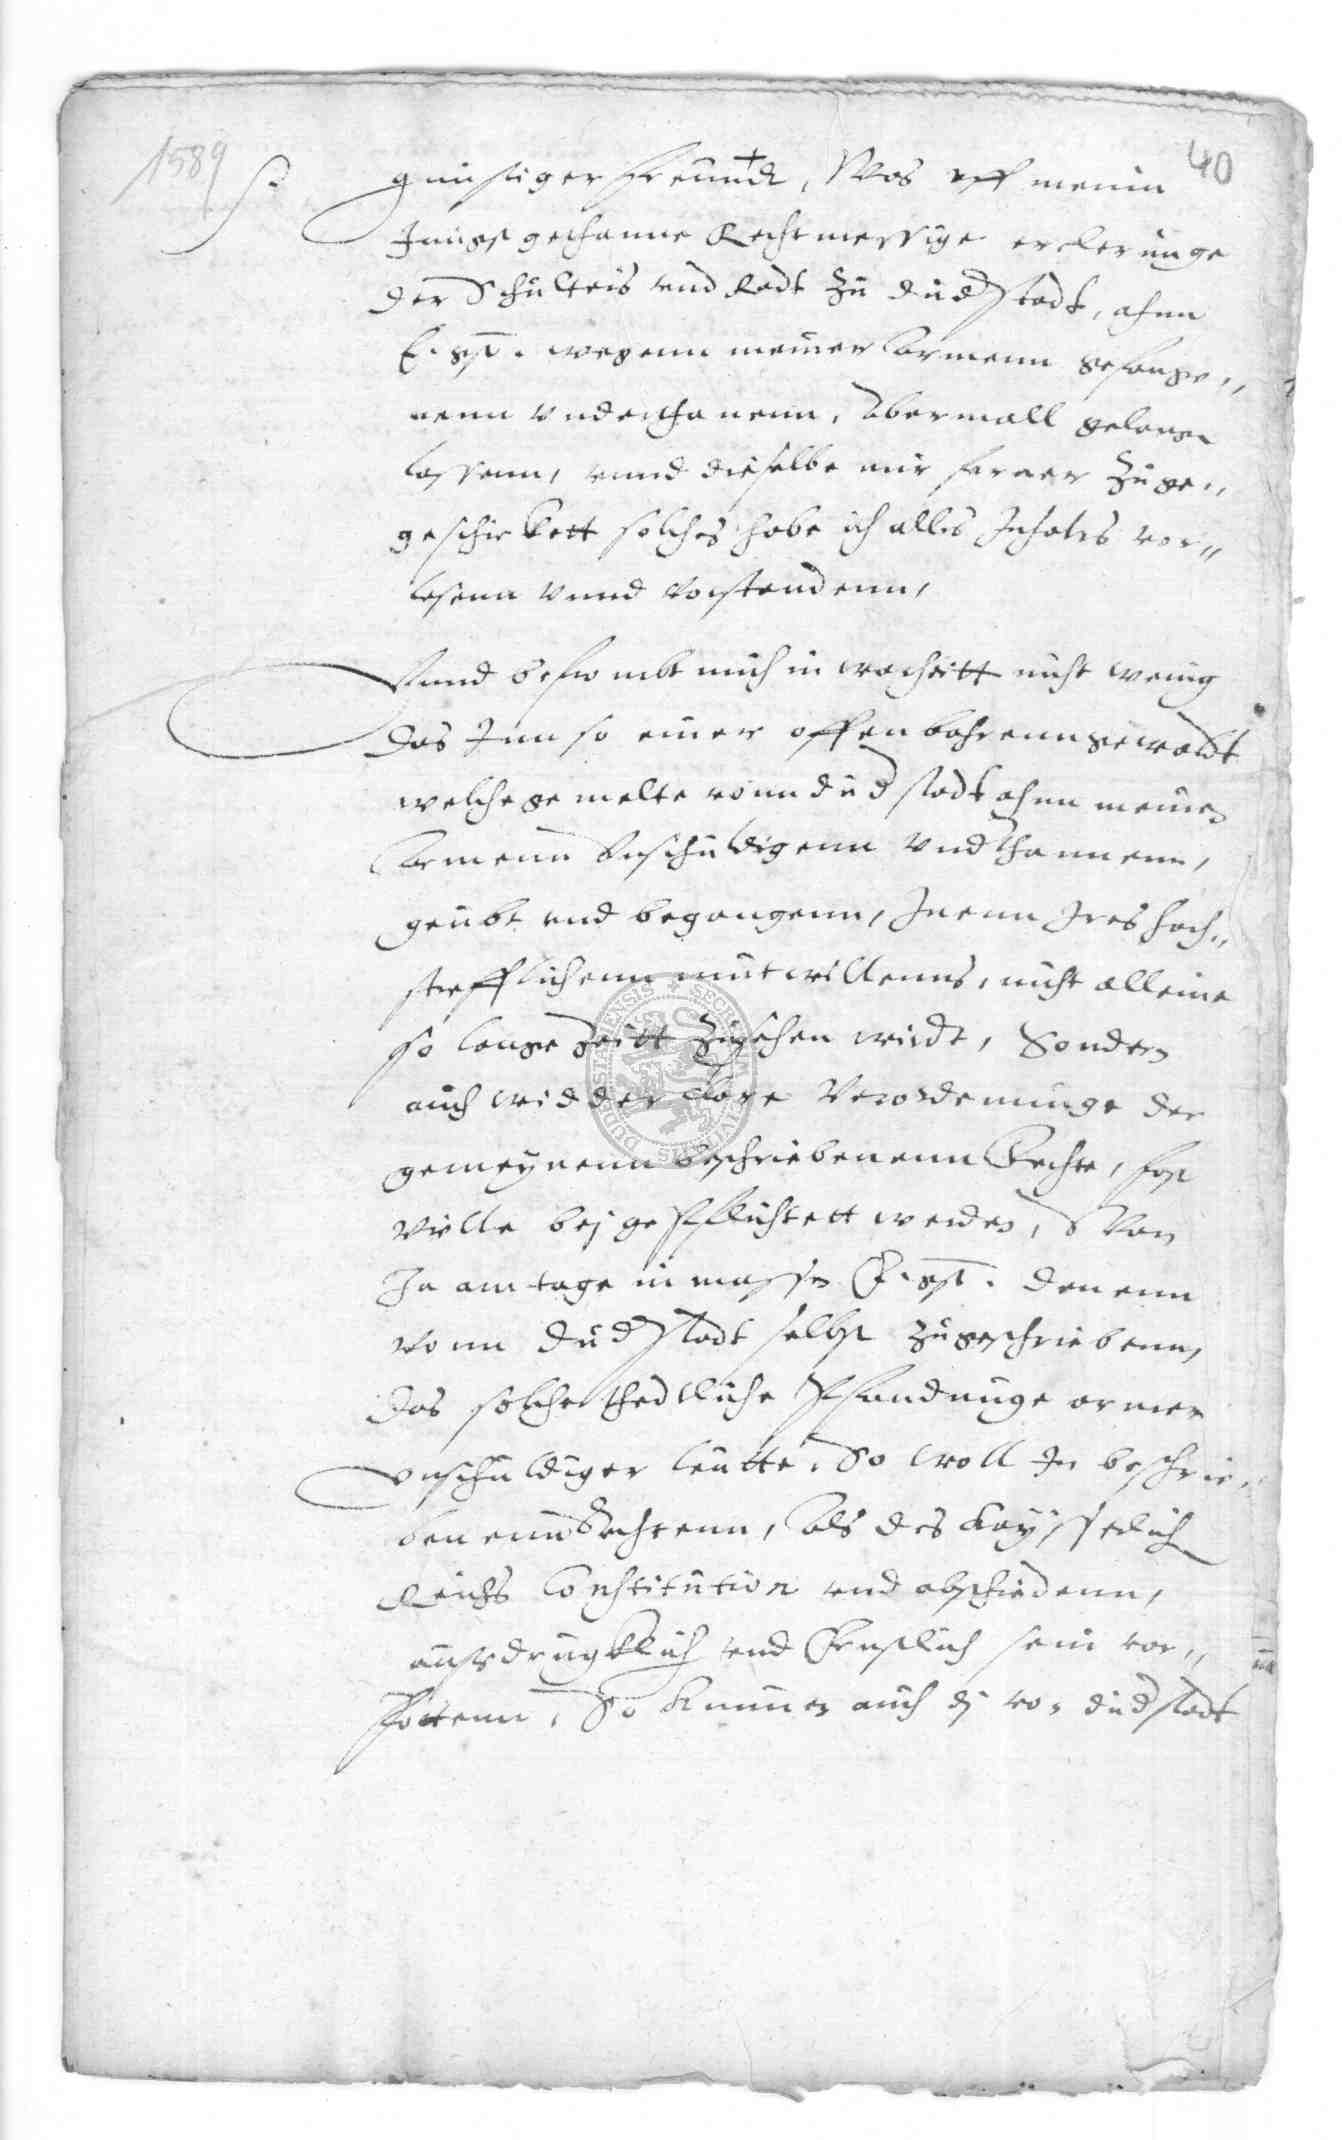 1589
40
günstiger Freundt, Was vff meein
Jüngst gethanne Rechtmessige erclerunge
der Schulteis vnd Radt zu Dudstadt, ahnn
E. gst. wegenn meiner Armenn gefange„
nenn Vnderthanenn, Abermall gelangen
lassenn, vnnd dieselbe mir ferner zuge„
geschickett solches habe ich alles Inhalts vor„
lesenn Vnnd vorstandenn,
Vnnd befrombt mich in warheitt nicht wenig
das Inn so einer offenbahrenn gewaldt
welche gemelte vonn Dudstadt ahnn meinen
Armenn Vnschuldigenn Vndthannenn,
geubt vnd begangenn, Inenn Ires hoch„
strefflichenn mutwillenns, nicht alleine
so lange Zeitt Zugesehen wirdt, Sondern
auch widder clare Verordenunge der
gemeynenn beschriebenenn Rechte, fast
Ville beigepflichtett werden, Wan
Ja am tage in massen E. gst. denenn
vonn Dudstadt selbst zugeschriebenn,
das solche thedtliche Pfandunge armer
Vnschuldiger leutte, So woll In beschrie„
benenn Rechtenn, Als des Kaysserlich
Reichs Constitution vnd abschiedenn,
aussdrugklich vnd Ernstlich sein vor„
pottenn, So kunnen auch di von Dudstadt
SECRETUM CIVITATIS DUDERSTADENSIS